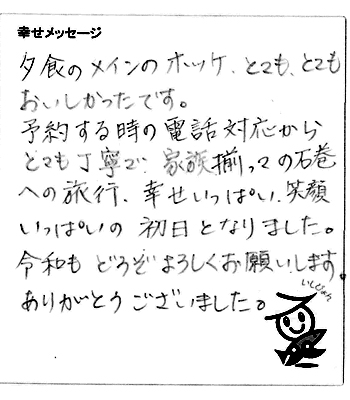 幸せメッセージ
夕食のメインのホッケ、とても、とても
おいしかったです。
予約する時の電話対応から
とても丁寧で、家族揃っての石巻
への旅行、幸せいっぱい、笑顔
いっぱいの初日となりました。
令和もどうぞよろしくお願いします
ありがとうございました。